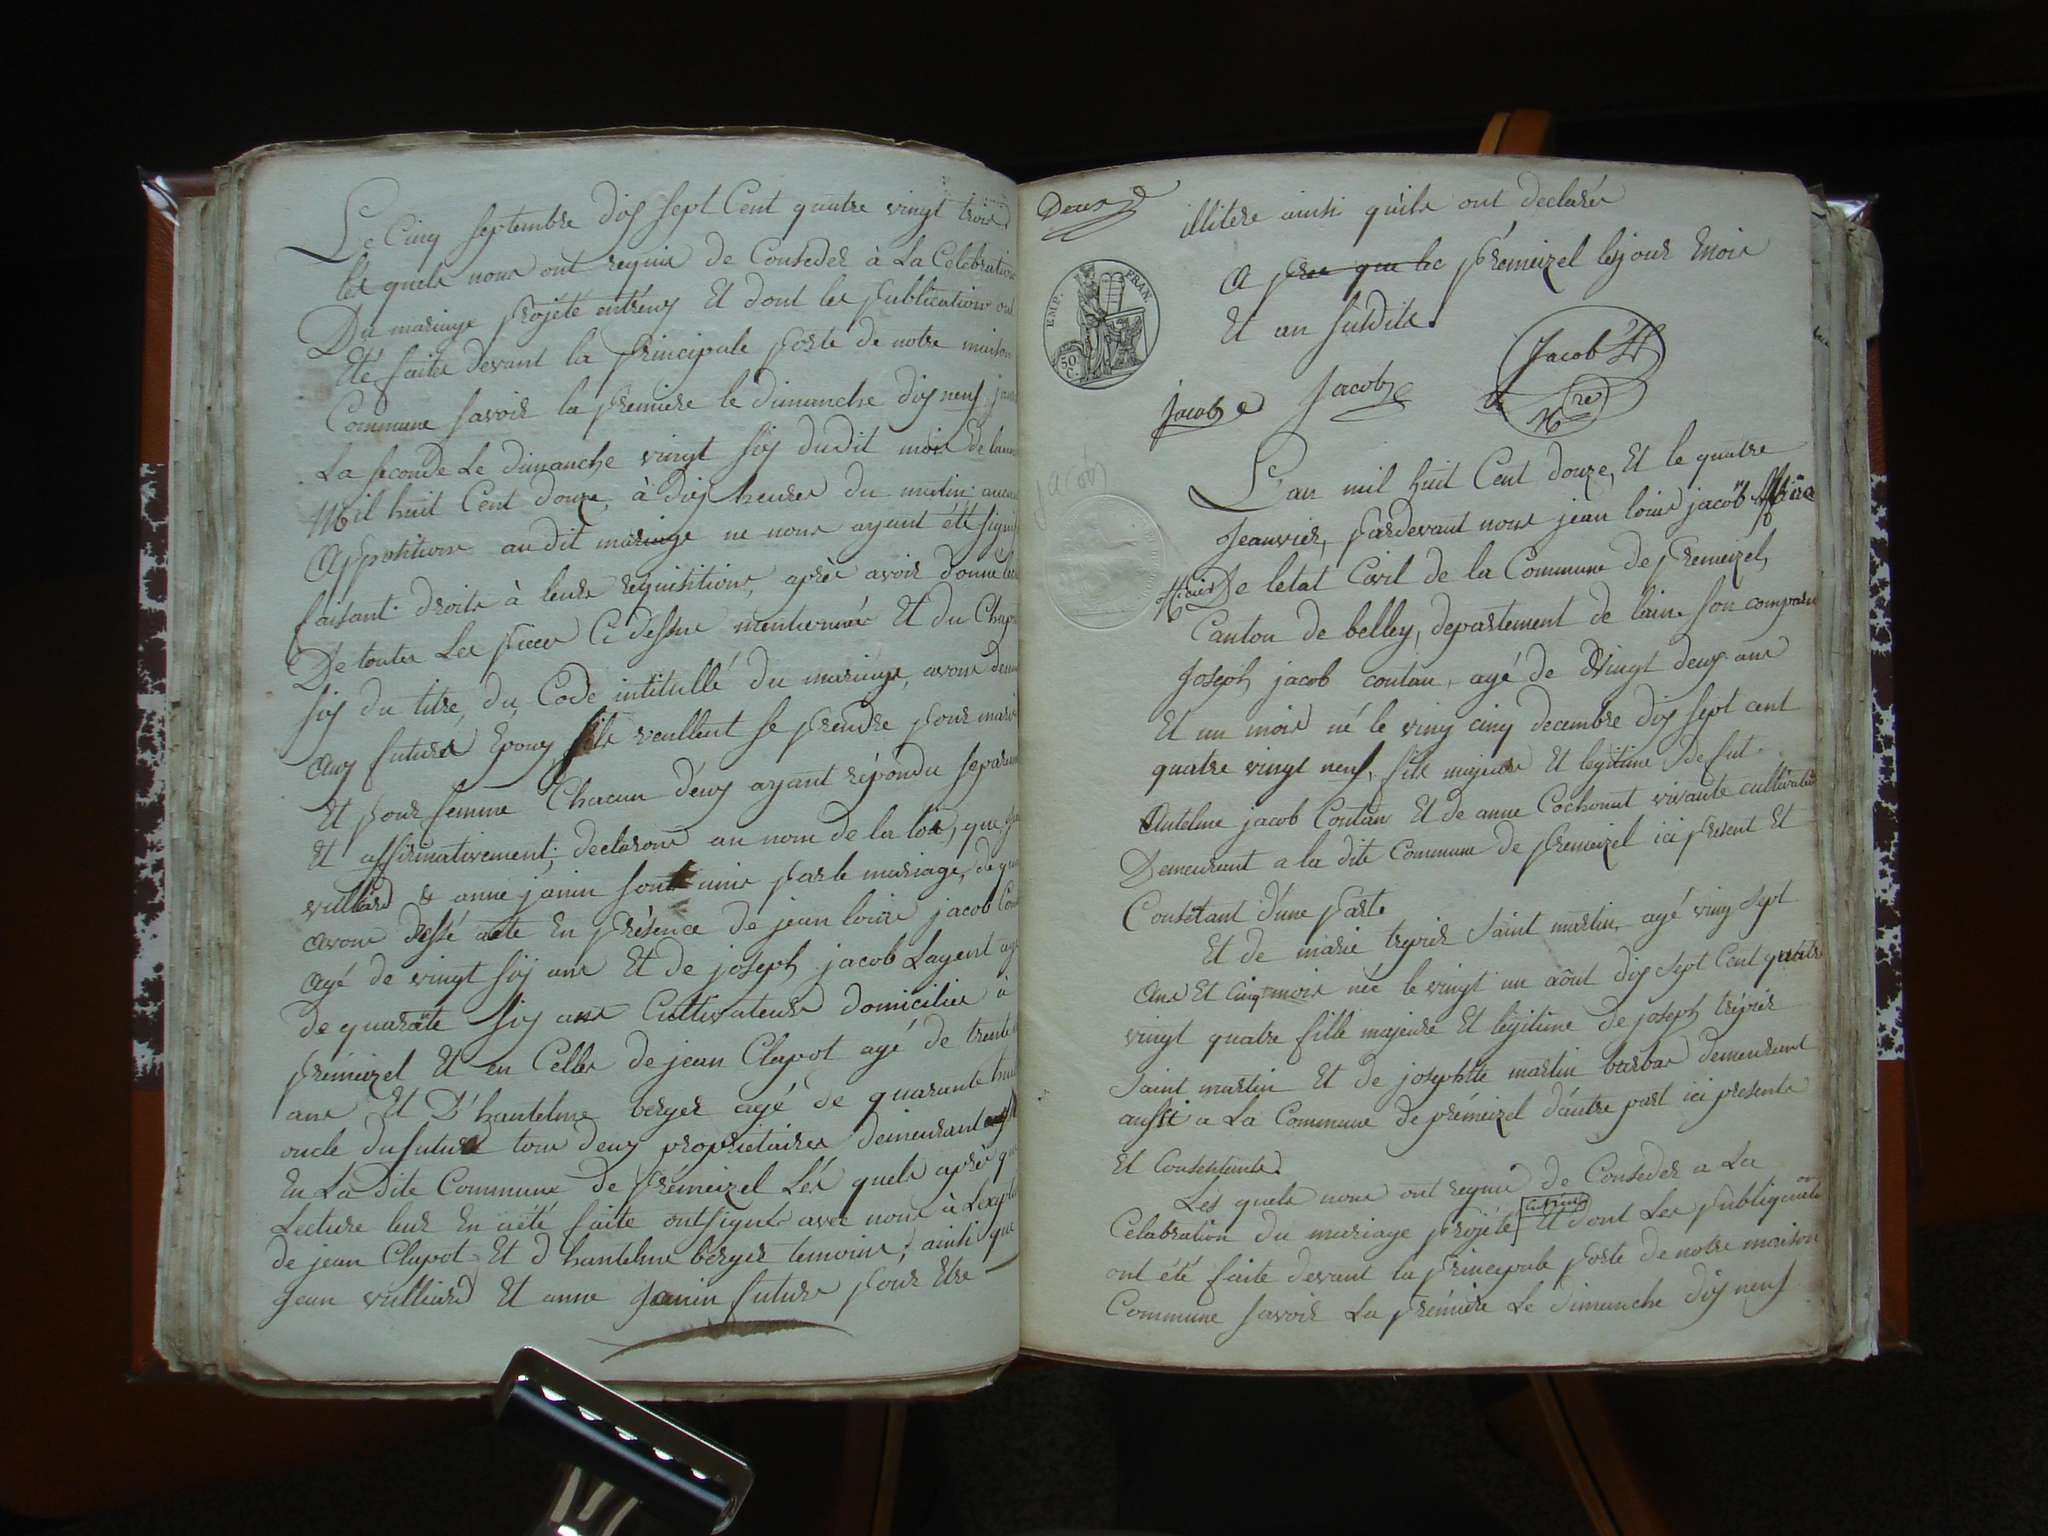 Le Cinq Septembre dix sept Cent quatre vingt trois
les quels nous ont requis de Conseder à La Celebration
Du mariage projété entréux Et dont les publications ont
Eté faites devant la principale porte de notre maison
Commune Savoir la premiere le dimanche dix neuf
La seconde Le dimanche vingt six dudit mois de lan
Mil huit Cent douze, à dix heures du matin aucune
Oppositions au dit mariage ne nous ayant été signi
faisant droits à leurs requisitions, après avoir donné
De toutes Les pieces Ci dessus mentionnée Et du Chap
six du titre du Code intitullé du mariage, avons dem
aux futurs Epoux, sils veullent se prendre pour mari
Et pour femme Chacun deux ayant répondu separem
Et affirmativement; declarons au nom de la loi, que
vulliard & anne janin sont unis par le mariage, de qu
avons dessé acte En présence de jean louis jacob
Agé de vingt six ans Et de joseph jacob Layent
De quarante six ans Cultivateurs domiciliés à
prémeizel Et en Celles de jean Clapot agé de trente
ans Et D'hantelme berger agé de quarante huit
oncle dufuture tous deux propriétaires demeurant
En La dite Commune de prémeizel Lés quels après
Lecture leur En a été faite ont signés avec nous à Lexp
de jean Clapot Et d hantelme berger temoins; ainsi que
jean vulliard Et anne janin future pour Etre
Deux
illitere ainsi quils ont declarés
EMP. FRAN.
50 C.
A pre que le prémeizel les jour Mois
Et an susdits.
Jacob
Jacob
Jacob
re
jacob
L'an mil huit Cent douze, Et le quatre
Jeanvier, pardevant nous jean louis jacob
De letat Civil de la Commune de premeizel,
Canton de belley, departement de lain. son comparu
Joseph jacob coutau, agé de Vingt deux ans
Et un mois né le ving cinq decembre dix sept cent
quatre vingt neuf, fils majeure Et legitime De fut
Antelme jacob Coutau Et de anne Cochonat vivante cultivateur
Demeurant a la dite Commune de premeizel ici present Et
Consetant d'une part.
Et de marie trepier Saint martin, agé ving sept
Ans Et Cinq mois née le vingt un aôut dix sept Cent quatre
vingt quatre fille majeure Et légitime de joseph trépier
Saint martin Et de josephte martin barbaz demeurant
aussi a La Commune de prémeizel d'autre part ici presente
Et Consentante.
Les quels nous ont requis de Conseder a La
entréux
Celabration du mariage projété Et dont Les publiquations
ont été faite devant la principale porte de notre maison
Commune Savoir La premiere Le dimanche dix neuf